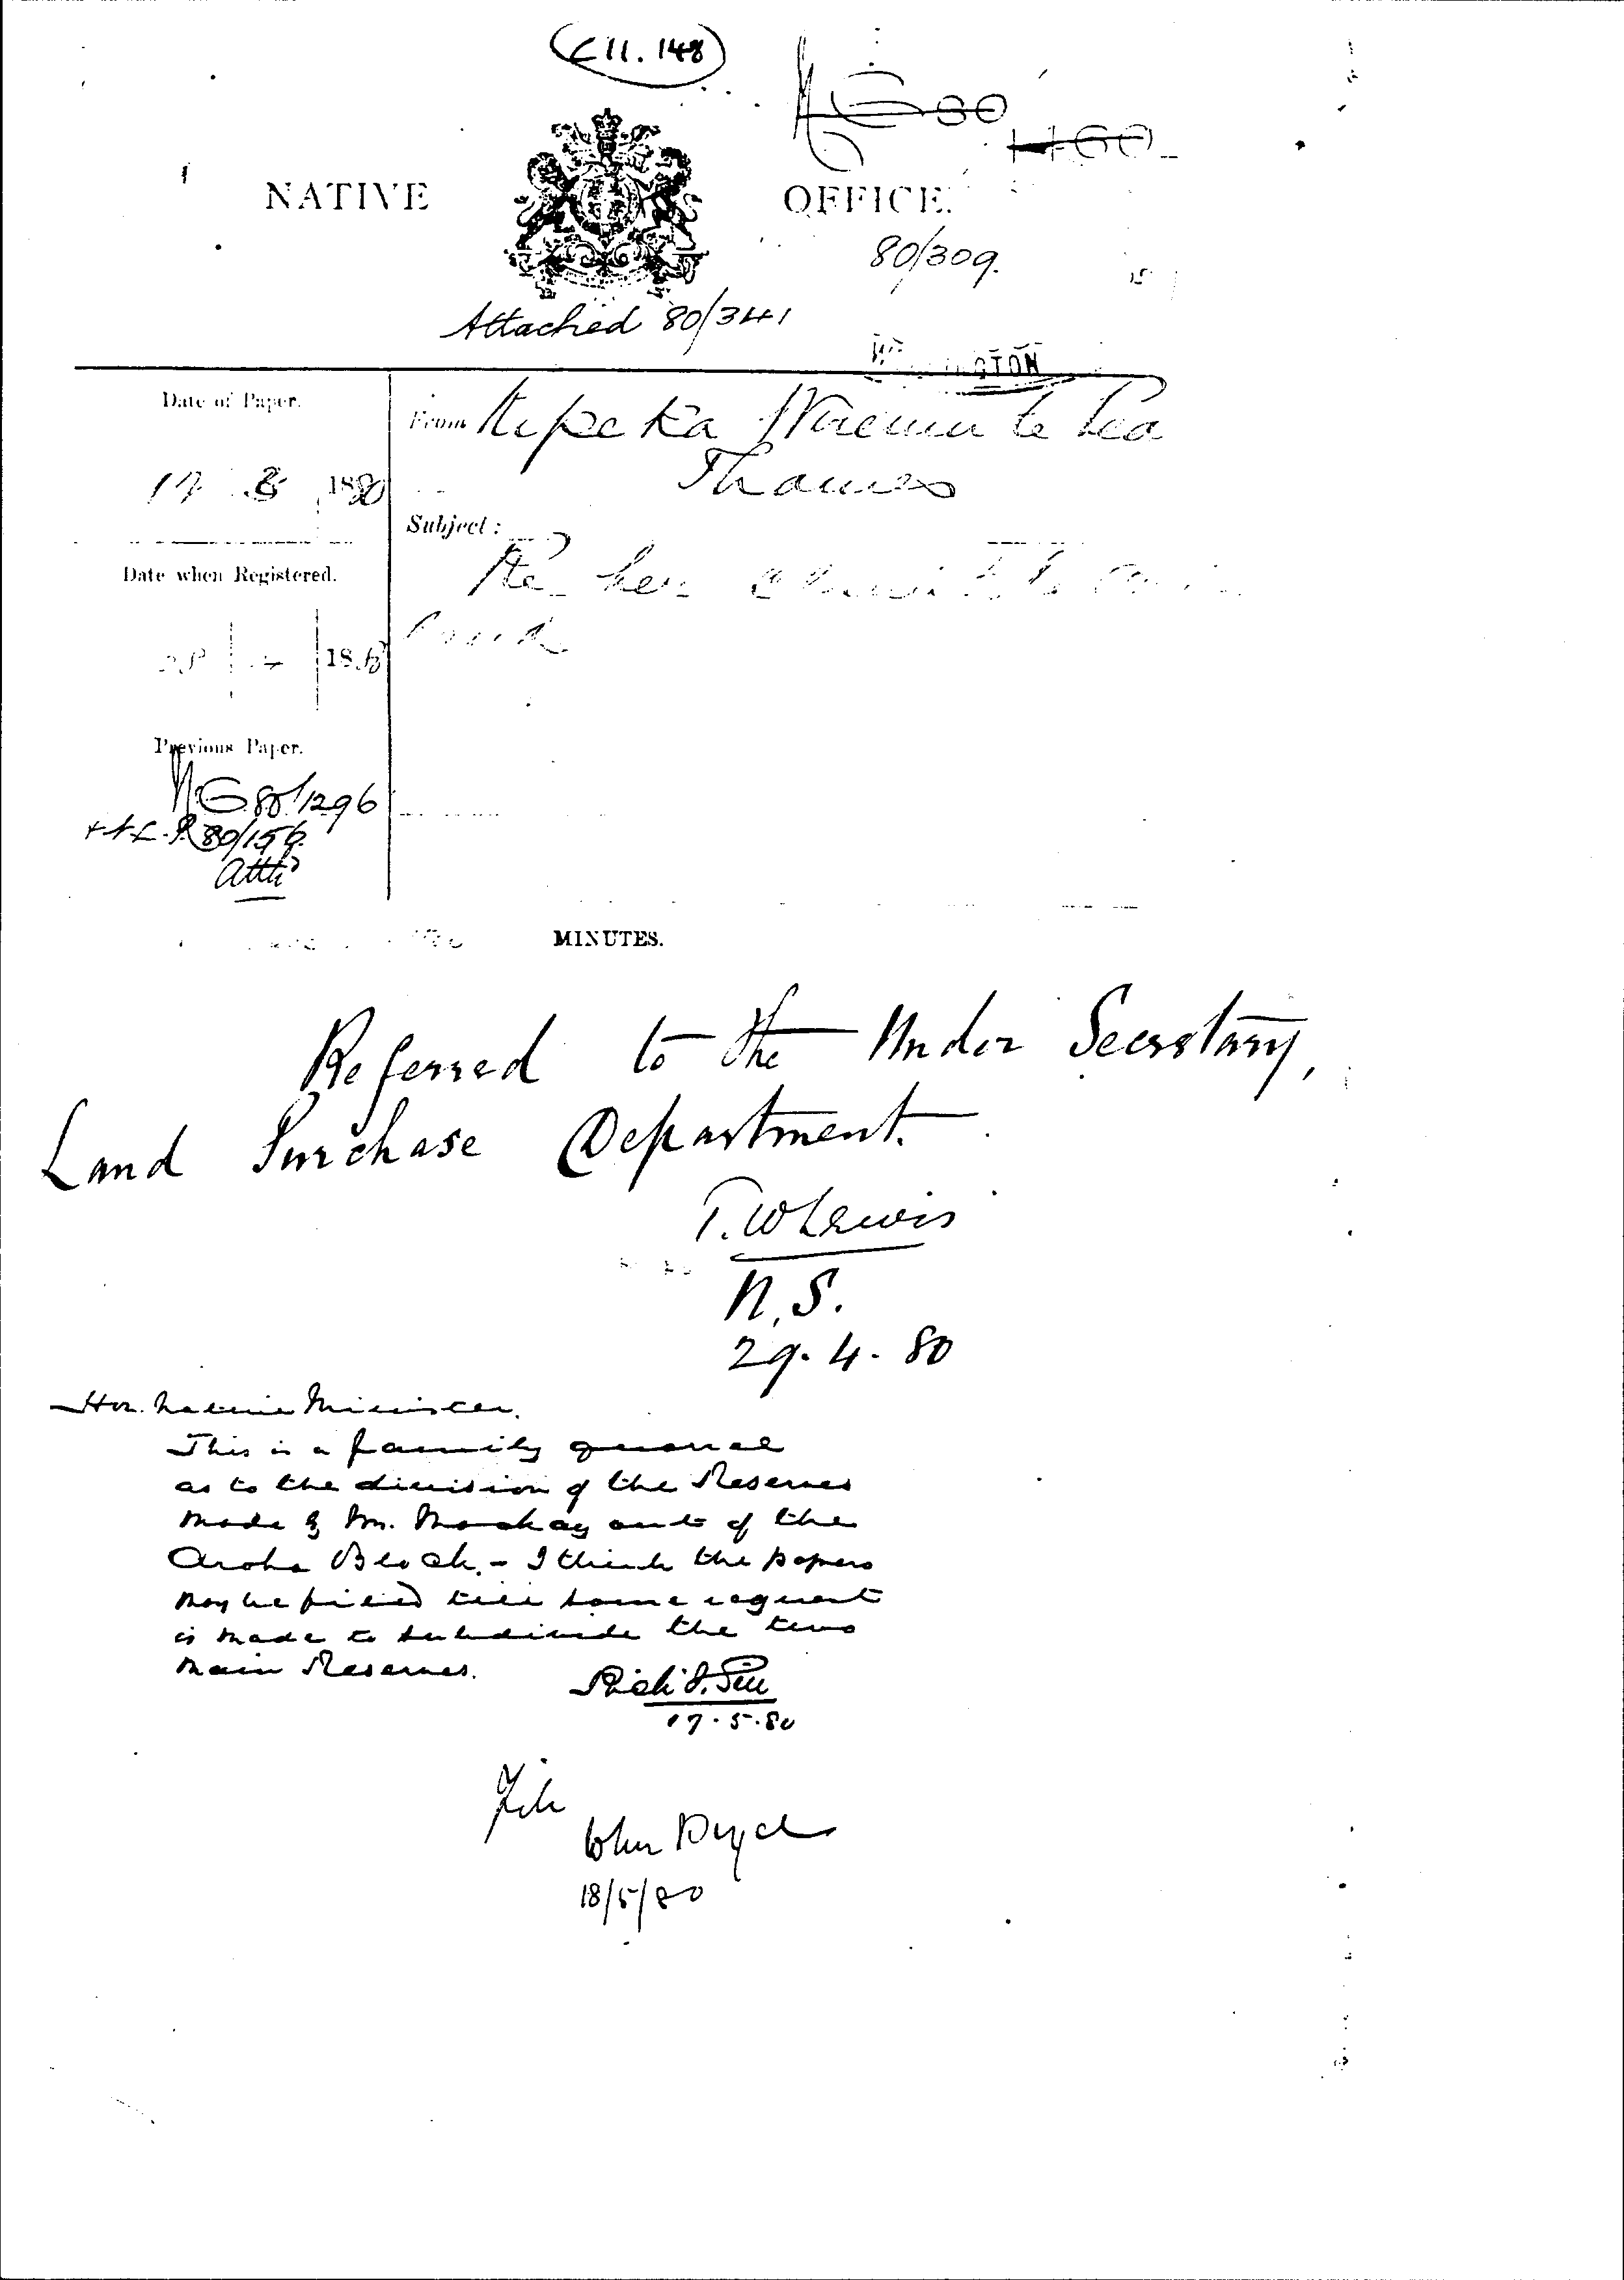 (C11.148)
NG 80
1460
NATIVE OFFICE.
80/309.
Attached 80/341
Date of Paper.
From Ripeka te Pea
17 1880
Thames
Subject:
Date when Registered.
Re her claim to
18
land
Previous Paper.
NG 80/1296
+ N.L.P. 80/156
Attd
MINUTES.
Referred to the Under Secretary,
Land Purchase Department.
T. W Lewis
N.S.
29. 4. 80
Hon. Native Minister.
This is a family quarrel
as to the division of the Reserves
made by Mr. Mackay out of the
Aroha Block. - I think the papers
may be filed till some request
is made to subdivide the two
main Reserves.
Rich. J. Gill
17. 5. 80
File
John Bryce
18/5/80